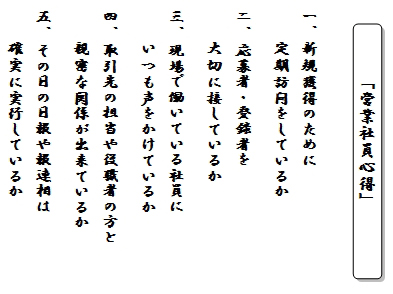 「営業社員心得」
一、新規獲得のために
定期訪問をしているか
二、応募者・登録者を
大切に接しているか
三、現場で働いている社員に
いつも声をかけているか
四、取引先の担当や役職者の方と
親密な関係が出来ているか
五、その日の日報や報連相は
確実に実行しているか